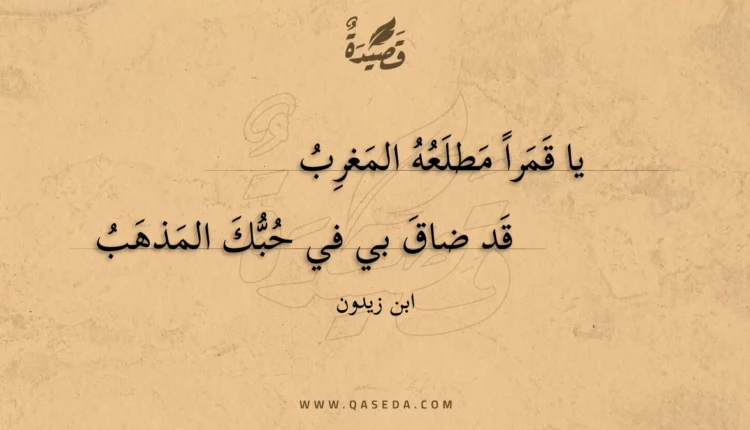 قَصِيْدَةٌ
يا قَمَراً مَطلَعُهُ المَغرِبُ
قَد ضاقَ بي في حُبُّكَ المَذهَبُ
ابن زيدون
WWW.QASEDA.COM